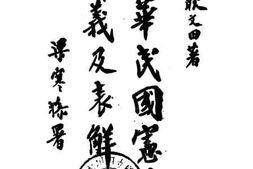 耿文田著
華民國憲
義及表解
梁寒操署